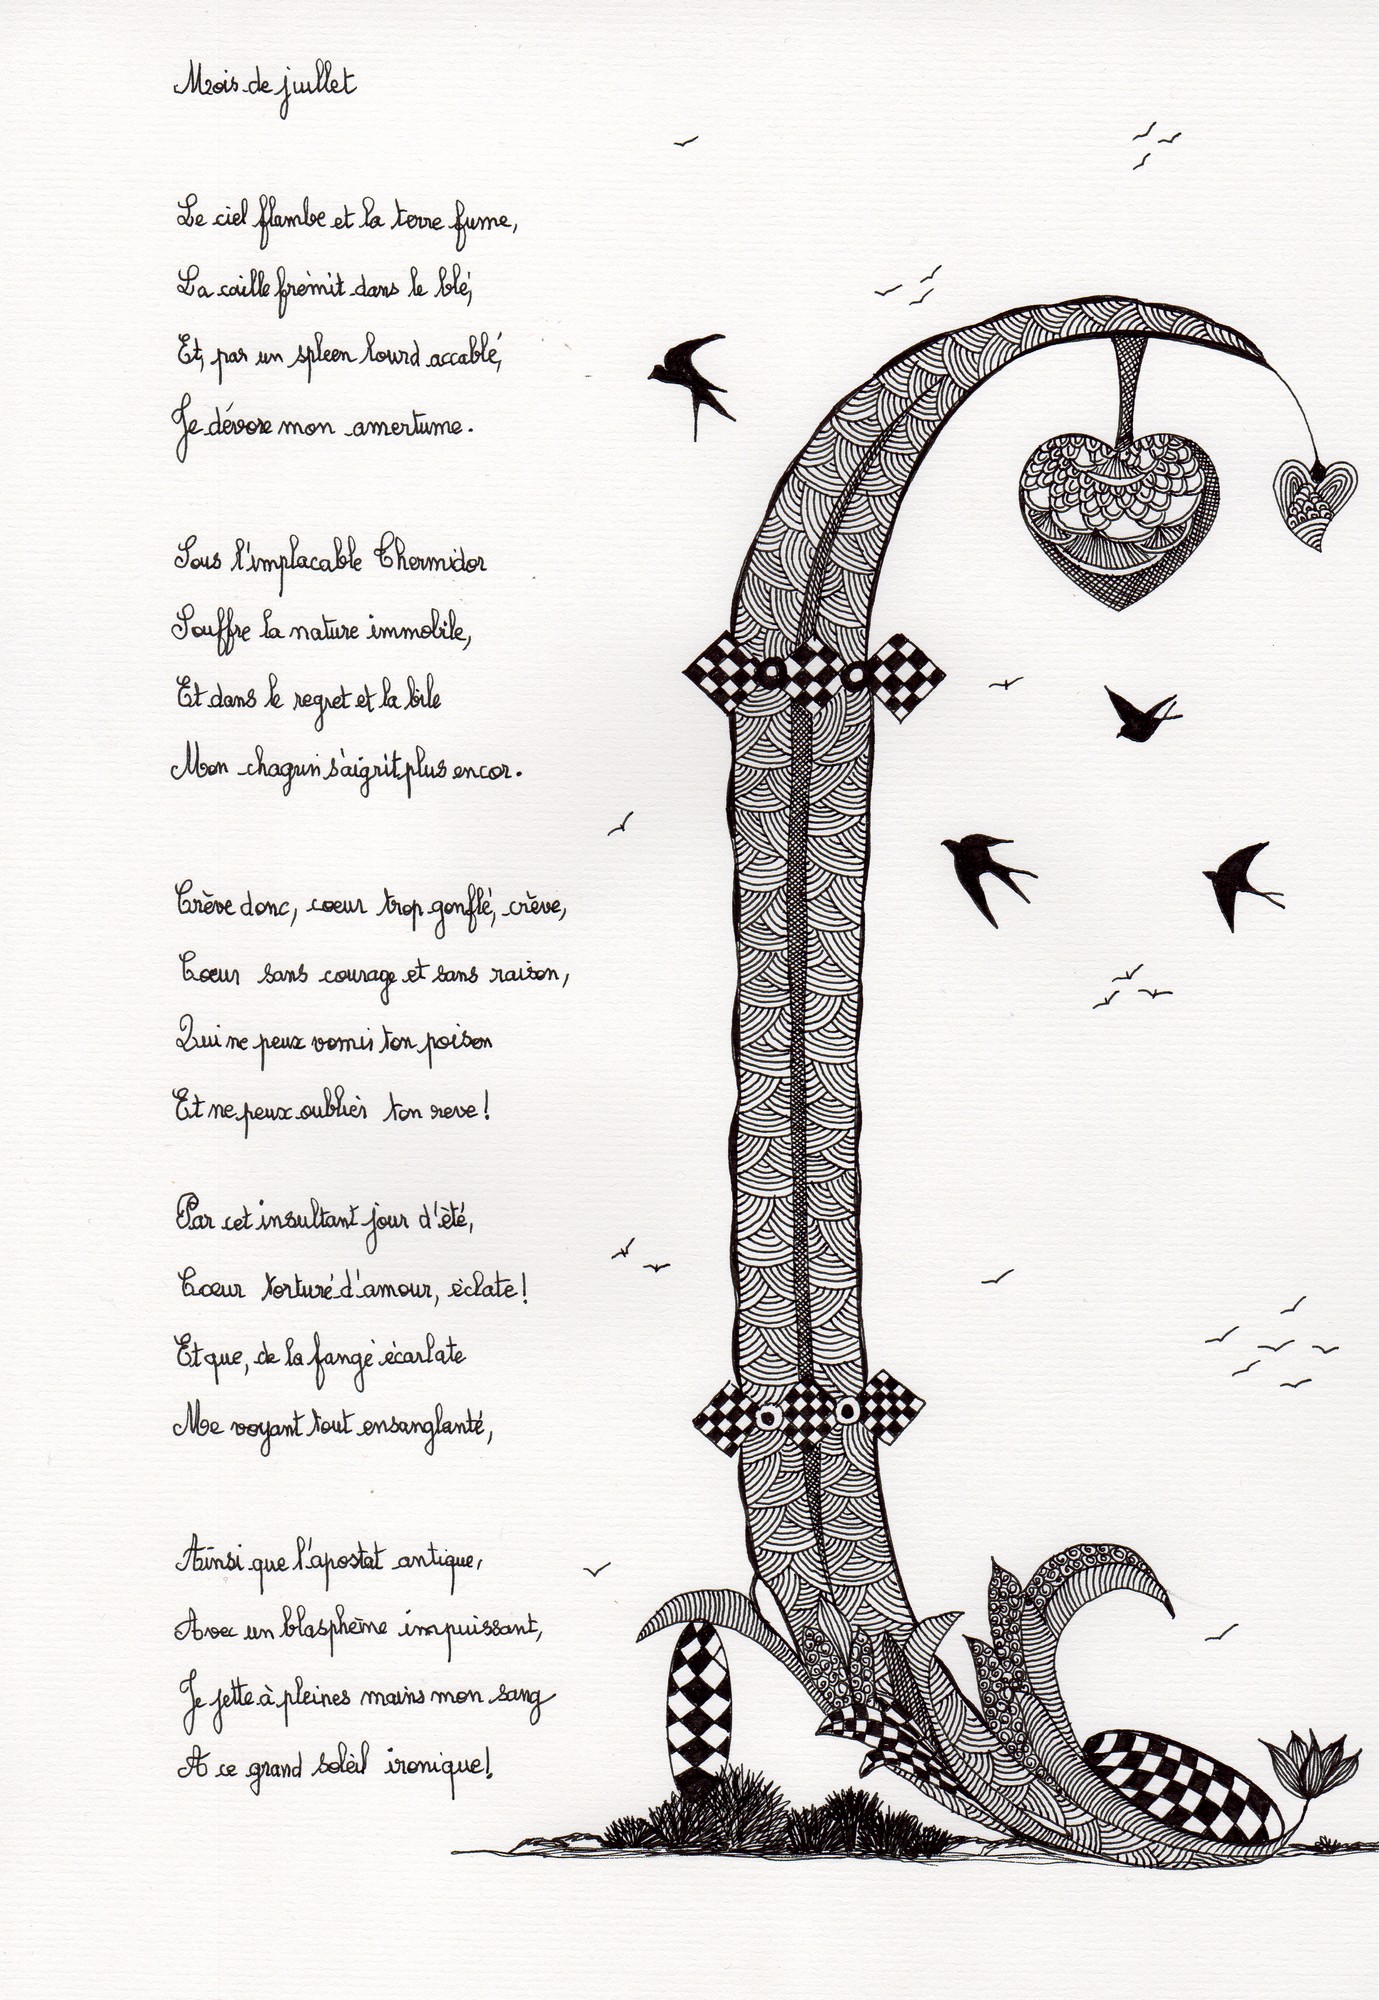 Mois de juillet
Le ciel flambe et la terre fume,
La caille frémit dans le blé,
Et, par un spleen lourd accablé,
Je dévore mon amertume.
Sous l'implacable Thermidor
Souffre la nature immobile,
Et dans le regret et la bile
Mon chagrin s'aigrit plus encor.
Crève donc, coeur trop gonflé, crève,
Coeur sans courage et sans raison,
Qui ne peux vomir ton poison
Et ne peux oublier ton reve !
Par cet insultant jour d'été,
Coeur torturé d'amour, éclate !
Et que, de la fange écarlate
Me voyant tout ensanglanté,
Ainsi que l'apostat antique,
Avec un blasphème impuissant,
Je jette à pleines mains mon sang
A ce grand soleil ironique !